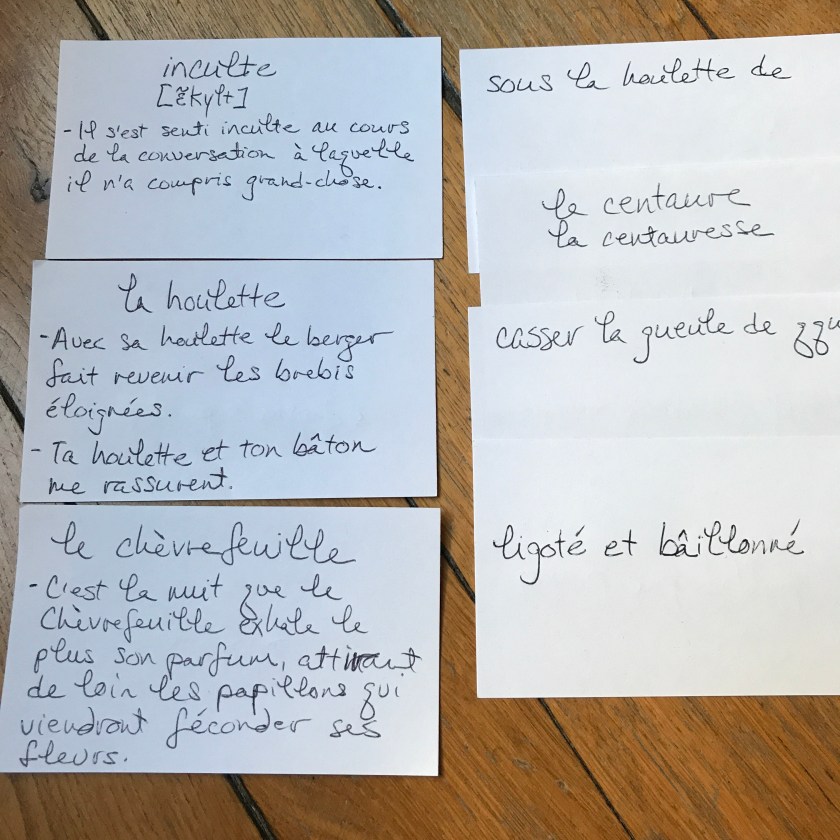 inculte
[ɛ̃kylt]
- Il s'est senti inculte au cours
de la conversation à laquelle
il n'a compris grand-chose.
la houlette
- Avec sa houlette le berger
fait revenir les brebis
éloignées.
- Ta houlette et ton bâton
me rassurent.
le chèvrefeuille
- C'est la nuit que le
Chèvrefeuille exhale le
plus son parfum, attirant
de loin les papillons qui
viendront féconder ses
fleurs.
sous la houlette de
le centaure
la centauresse
casser la gueule de qqu
ligoté et bâillonné